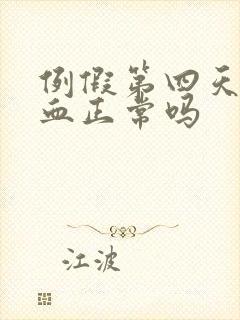 例假第四天
血正常吗
江波